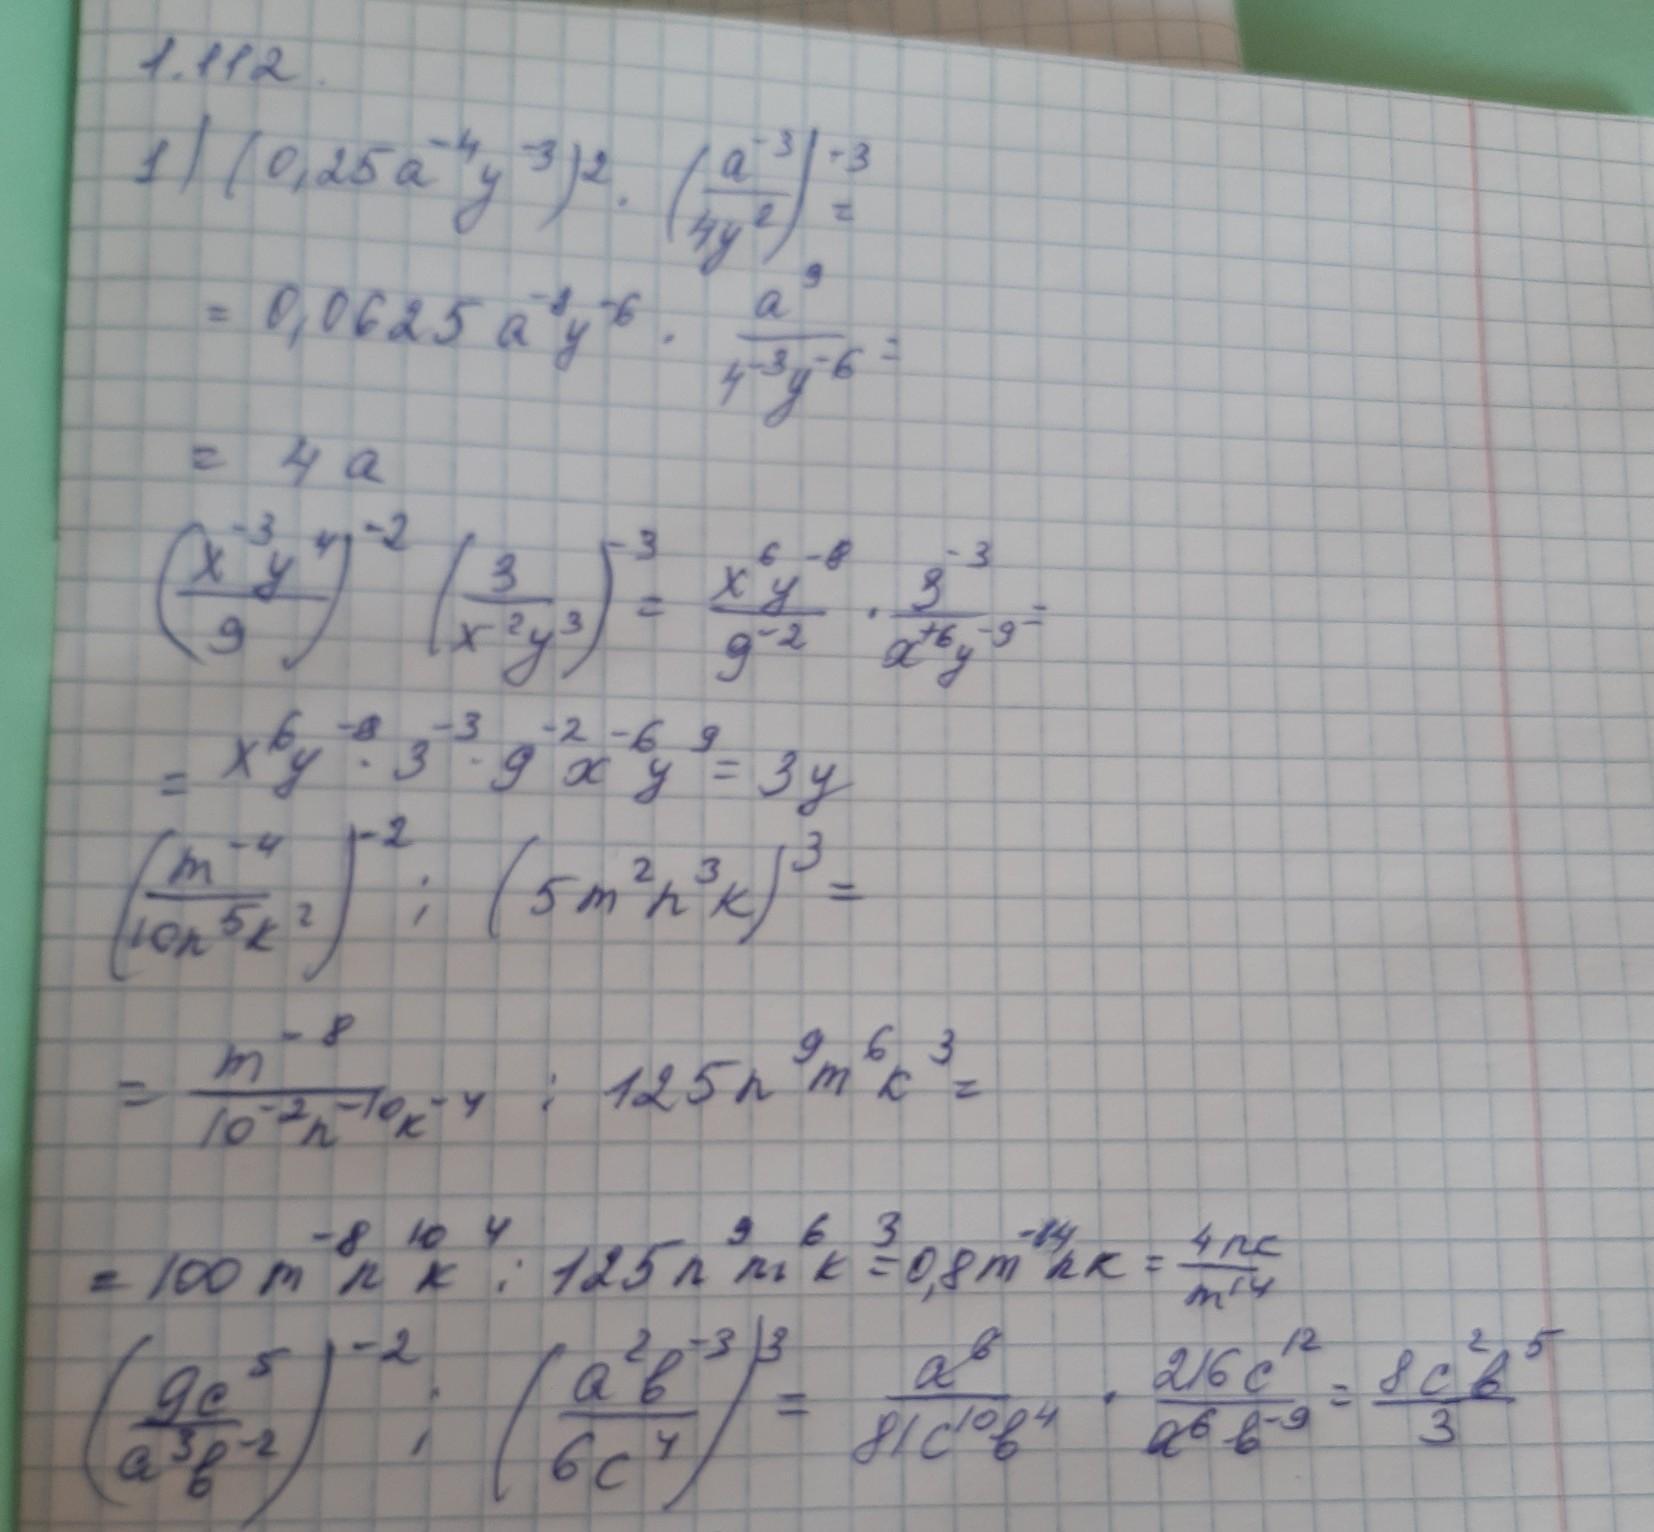 1.112.
1) (0,25a⁻⁴y⁻³)² · (a⁻³/4y²)⁻³ =
= 0,0625a⁻⁸y⁻⁶ · a⁹/4⁻³y⁻⁶ =
= 4a
(x⁻³y⁴/9)⁻² (3/x⁻²y³)⁻³ = x⁶y⁻⁸/9⁻² · 3⁻³/x⁺⁶y⁻⁹ =
= x⁶y⁻⁸ · 3⁻³ · 9⁻²x⁻⁶y⁹ = 3y
(m⁻⁴/10n⁵k²)⁻² : (5m²n³k)³ =
= m⁻⁸/10⁻²n⁻¹⁰k⁻⁴ : 125n⁹m⁶k³ =
= 100m⁻⁸n¹⁰k⁴ : 125n⁹m⁶k³ = 0,8m⁻¹⁴nk = 4nc/m¹⁴
(9c⁵/a³b⁻²)⁻² : (a²b⁻³/6c⁴)³ = a⁶/81c¹⁰b⁴ · 216c¹²/a⁶b⁻⁹ = 8c²b⁵/3